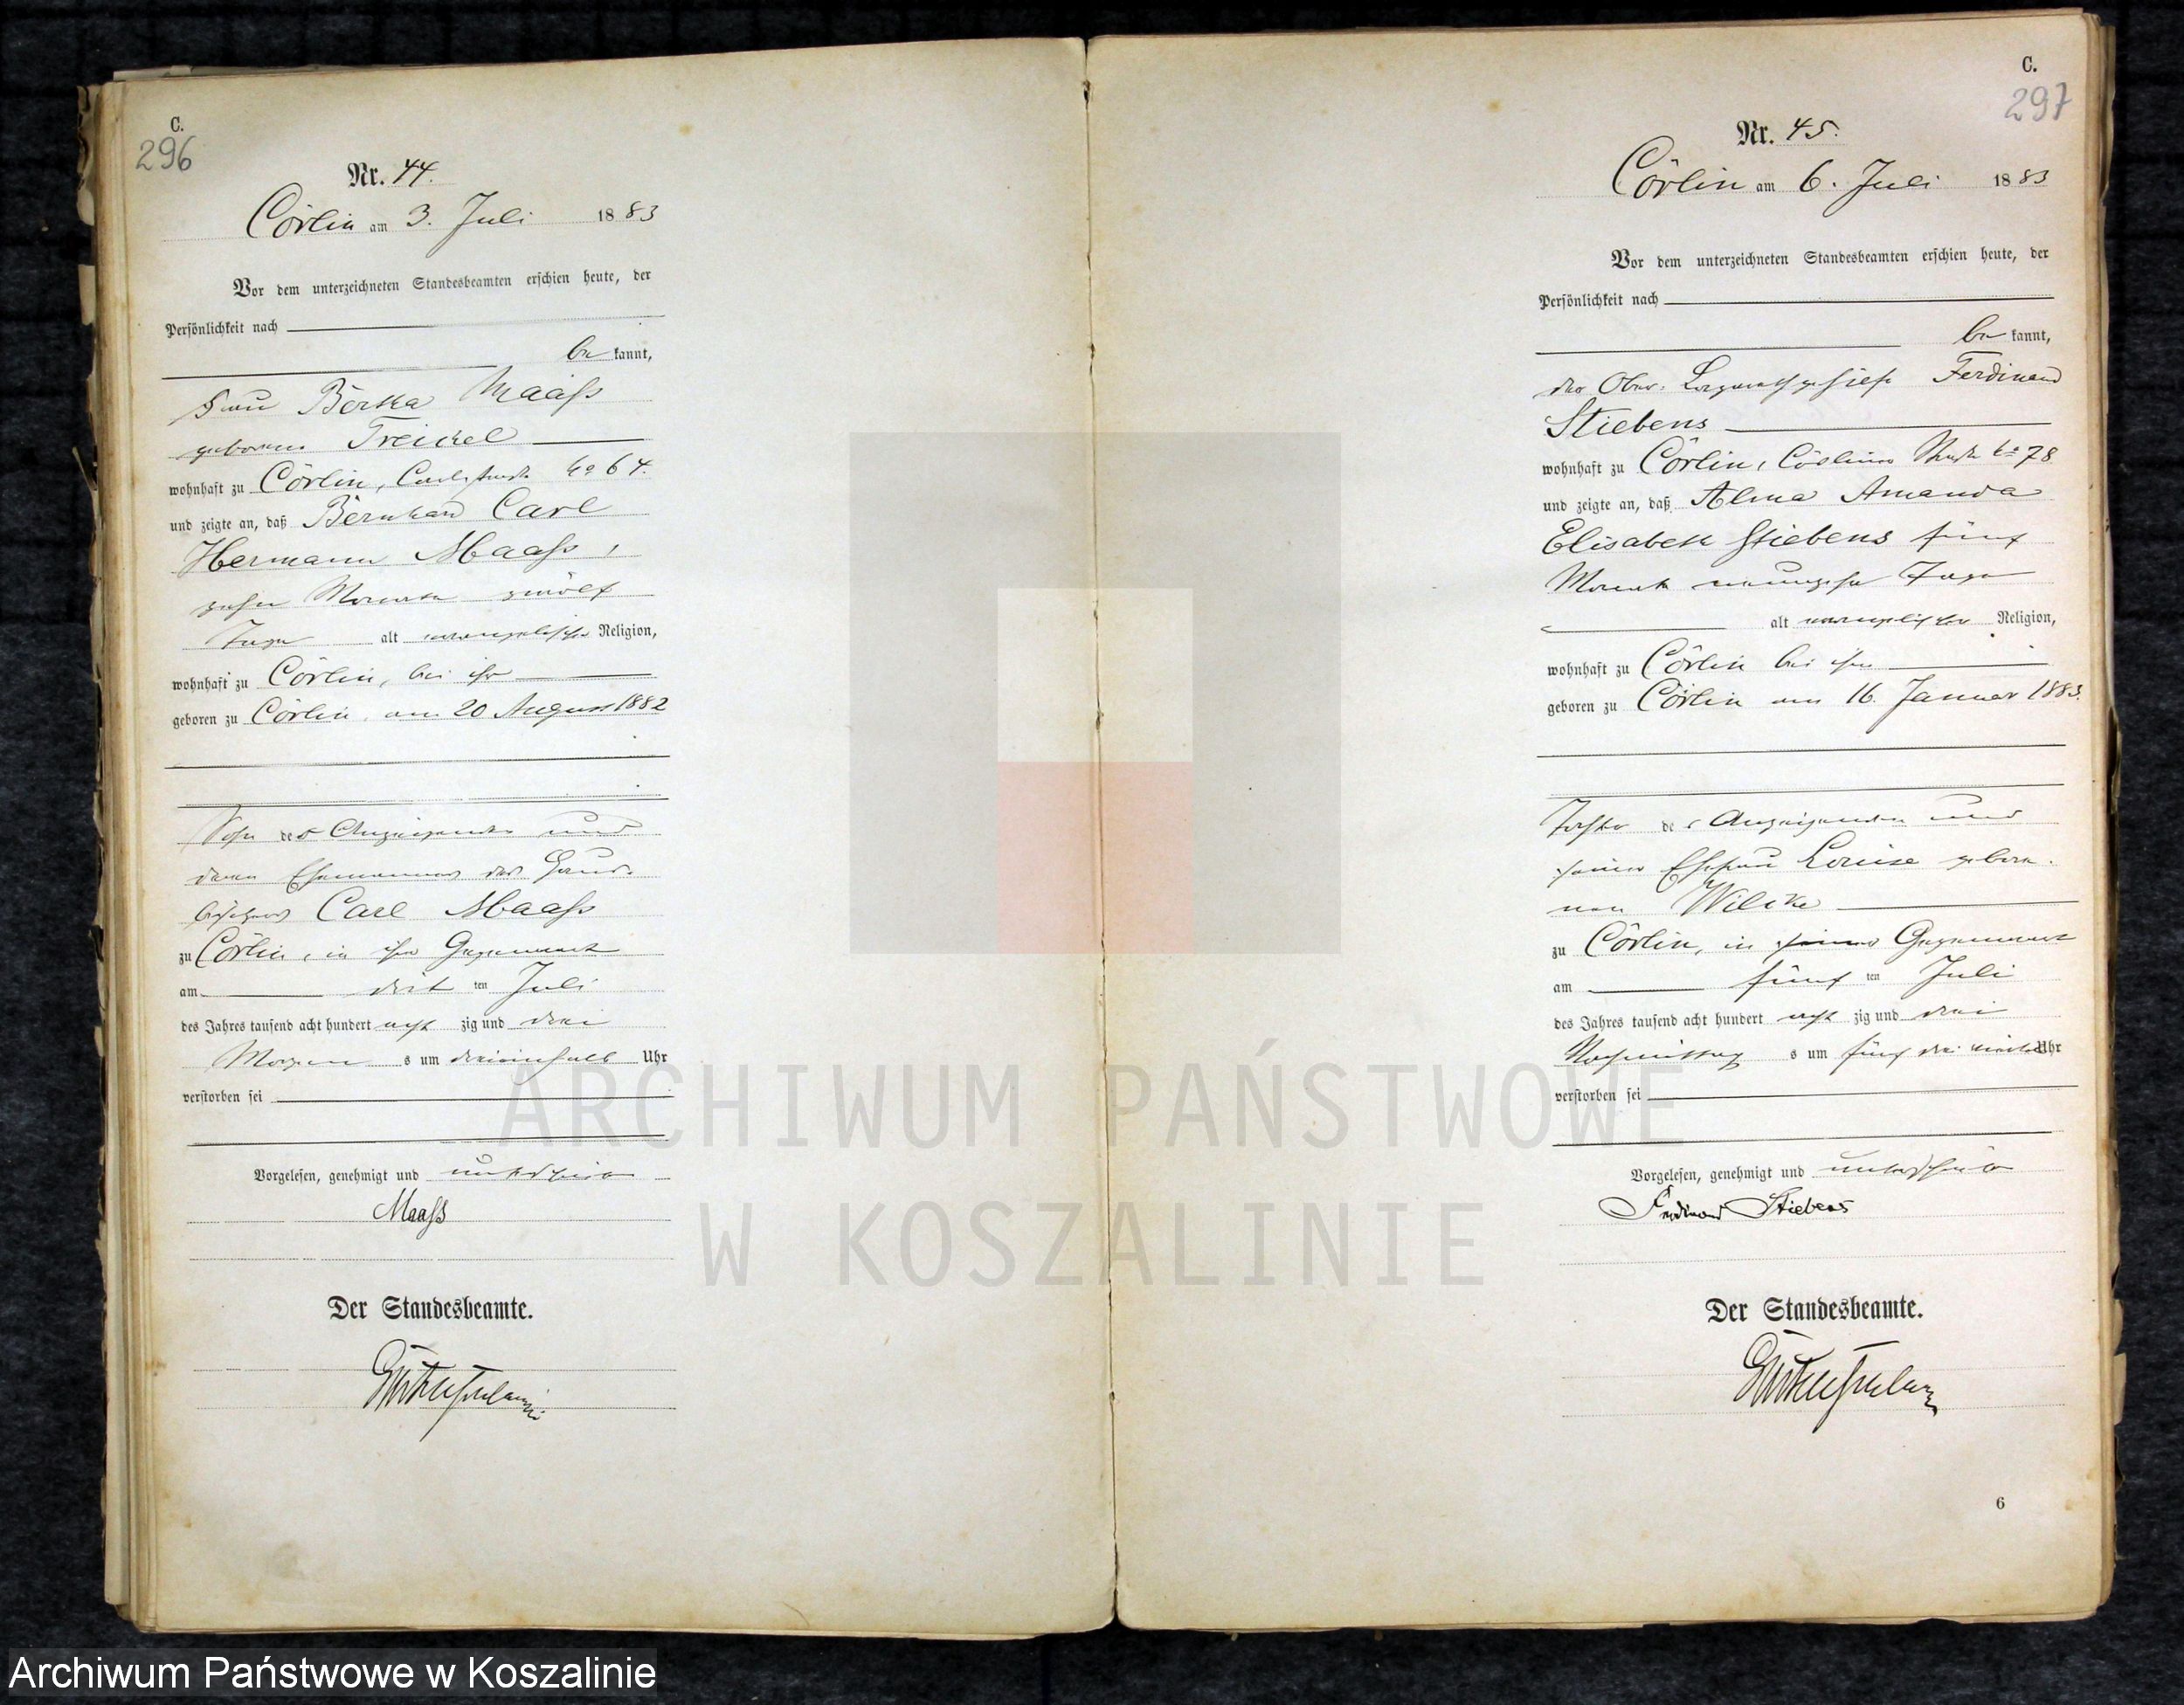 C.
296
Nr. 44.
Cörlin am 3. Juli 1883
Vor dem unterzeichneten Standesbeamten erschien heute, der
Persönlichkeit nach
be kannt,
Frau Maaß
geborene Treichel
wohnhaft zu Cörlin, No 64.
und zeigte an, daß Bernhard Carl
Hermann Maaß,
zehn Monate zwölf
Tage alt evangelischer Religion,
wohnhaft zu Cörlin, bei ihr
geboren zu Cörlin, am 20 August 1882
Sohn der Anzeigenden und
deren Ehemannes des Haus-
besitzers Carl Maaß
zu Cörlin, in ihrer Gegenwart
am dritten Juli
des Jahres tausend acht hundert acht zig und drei
Morgens um Uhr
verstorben sei
Vorgelesen, genehmigt und unterschrieben
Maaß
Der Standesbeamte.
C.
297
Nr. 45.
Cörlin am 6. Juli 1883
Vor dem unterzeichneten Standesbeamten erschien heute, der
Persönlichkeit nach
be kannt,
der Ober- Ferdinand
Stiebens
wohnhaft zu Cörlin, Cösliner No 78
und zeigte an, daß Alma Amanda
Elisabeth Stiebens fünf
Monate neunzehn Tage
alt evangelischer Religion,
wohnhaft zu Cörlin bei ihm
geboren zu Cörlin am 16. Januar 1883.
Tochter des Anzeigenden und
seiner Ehefrau Louise gebore-
nen Wilcke
zu Cörlin, in seiner Gegenwart
am fünften Juli
des Jahres tausend acht hundert acht zig und drei
Nachmittags um fünf drei viertel Uhr
verstorben sei
Vorgelesen, genehmigt und unterschrieben
Ferdinand Stiebens
Der Standesbeamte.
6
ARCHIWUM PAŃSTWOWE
W KOSZALINIE
Archiwum Państwowe w Koszalinie